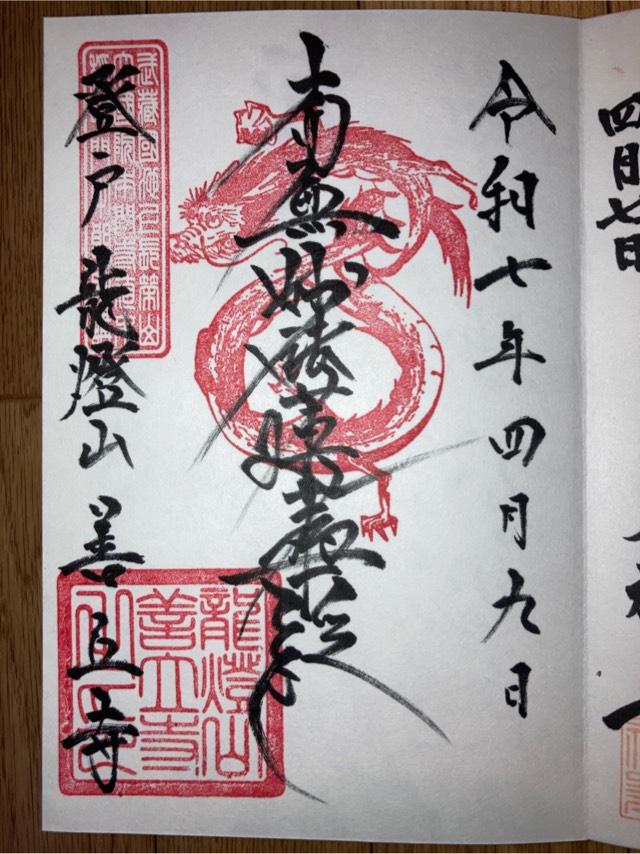 四月七日
令和七年四月九日
南無妙法蓮華経
武蔵國池上長榮山
登戸 龍燈山 善立寺
龍燈山
善立寺